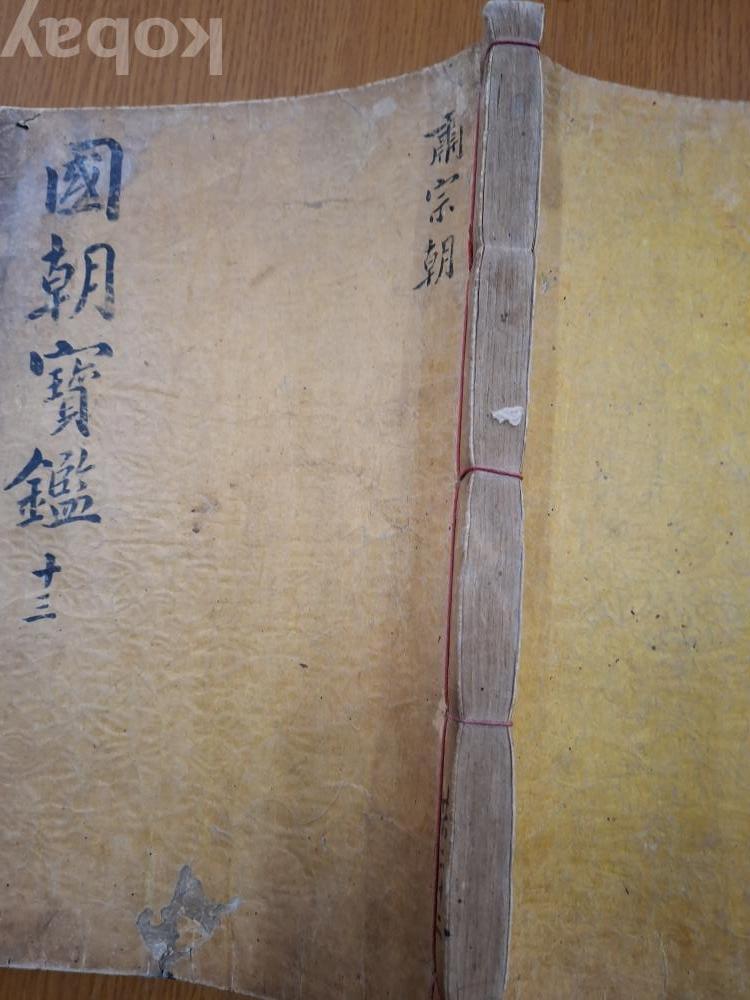 kobay
國朝寶鑑 十三
肅宗朝